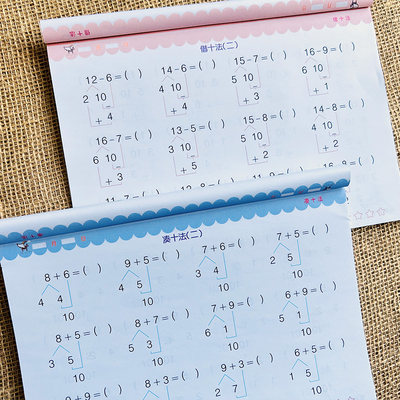 借十法
借十法(二)
12-6=( ) 14-6=( ) 15-7=( ) 16-9=( )
2 10 4 10 5 10 6 10
+ 4 + 4 + 3 + 1
16-7=( ) 13-5=( ) 15-8=( ) 14-8=( )
6 10 3 10 5 10 4 10
+ 3 + 5 + 2 + 2
凑十法
凑十法(二)
8+6=( ) 9+5=( ) 7+6=( ) 6+5=( )
4 4 4 1 3 4 5 1
10 10 10 10
8+5=( ) 8+7=( ) 7+9=( ) 6+9=( )
3 5 5 3 6 1 5 1
10 10 10 10
9+9=( ) 8+3=( ) 9+3=( ) 6+5=( )
2 7 1 5
10 10